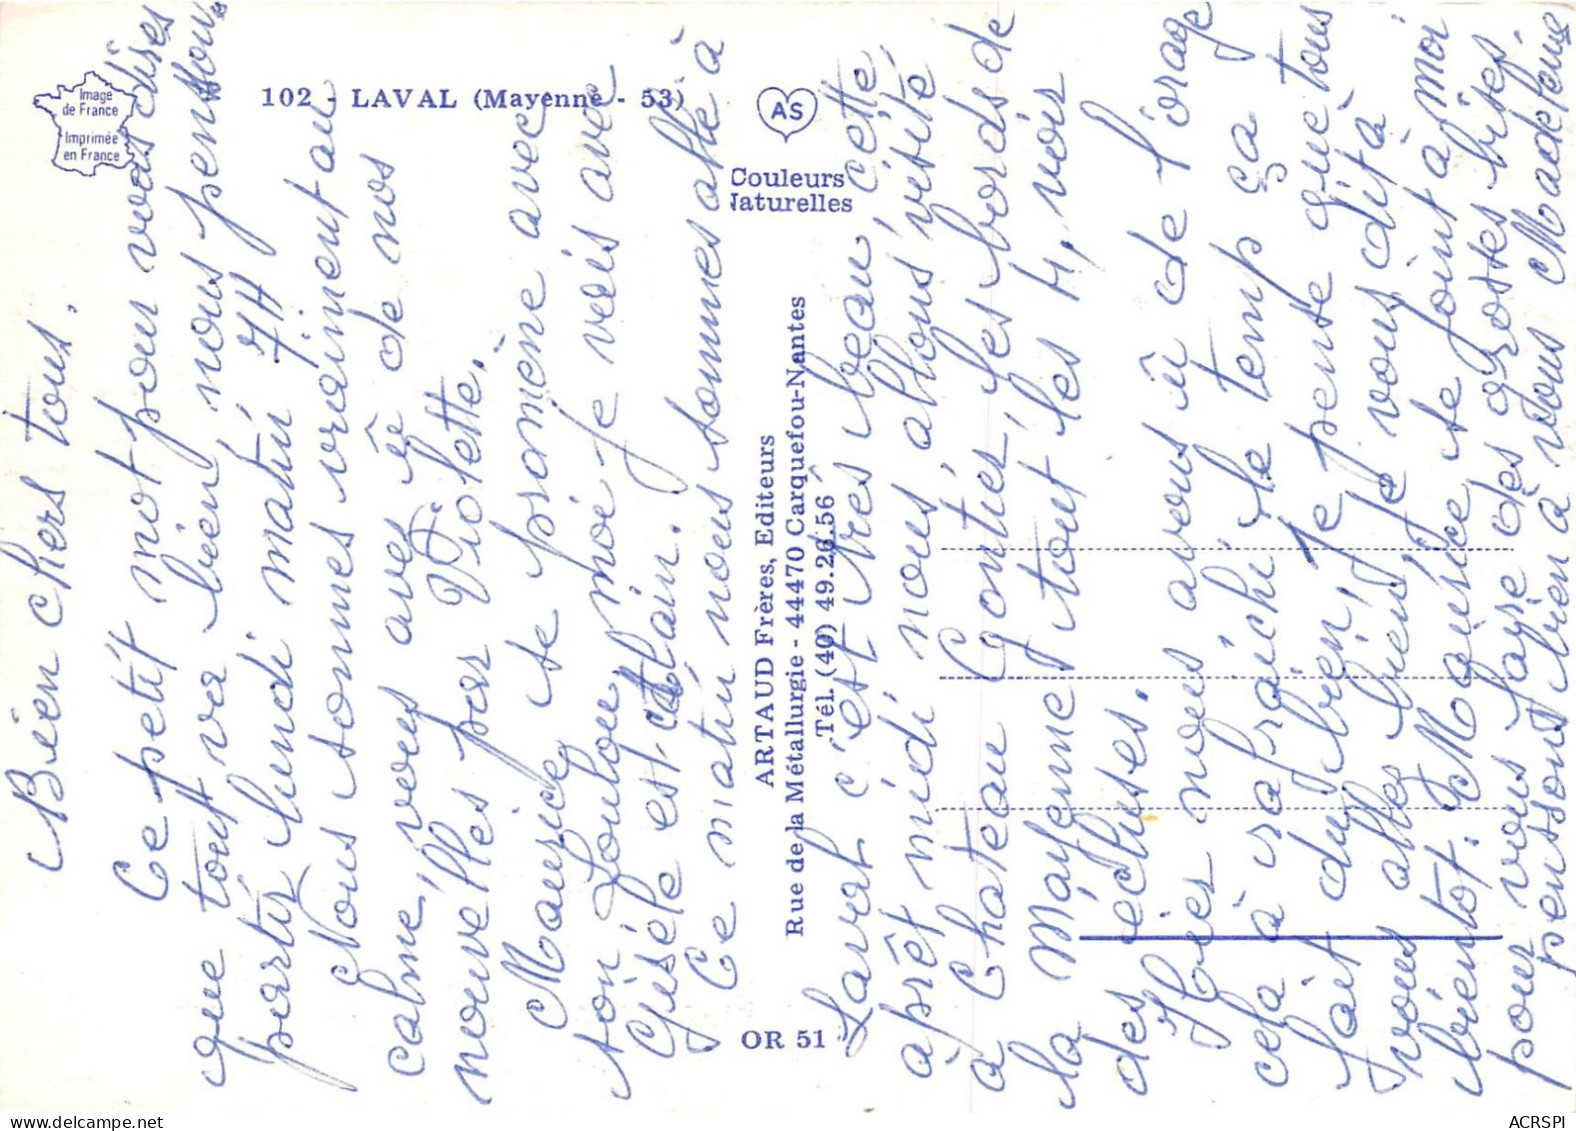 Image
de France
Imprimée
en France
102 - LAVAL (Mayenne - 53)
AS
Couleurs
Naturelles
ARTAUD Frères, Editeurs
Rue de la Métallurgie - 44470 Carquefou-Nantes
Tél. (40) 49.26.56
OR 51
Bien chers tous,
Ce petit mot pour vous dires
que tout va bien, nous pensons
partir lundi matin 7H
Nous sommes vraiment au
calme, vous avez û de nos
nouvelles par Violette.
Maurice se promène avec
son Loulou, moi je vais avec
Gisèle est calain.
Ce matin nous sommes allé à
Laval c'est très beau, cette
aprêt midi nous allons visité
à Chateau Gontier, les bords de
la Mayenne, tout les 4, voir
des écluses.
Hier nous avons û de l'orage
cela à rafraichi le temp ça
fait du bien, Je pense que tous
vous allez bien, Je vous dit à
bientot. Maurice se joint à moi
pour vous faire des grosses bises.
pensons bien a vous Madeleine
ACRSPI
delcampe.net